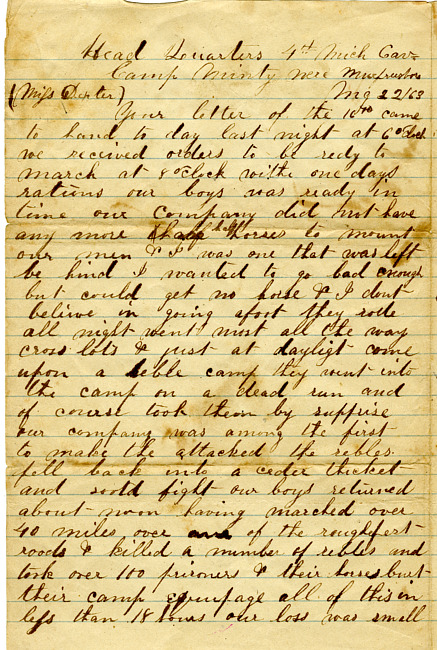 Head Quarters 4th Mich Cav
Camp Minty nere
(Miss Dexter) 22/63
Your letter of the came
to hand to day last night at 6 oClock
we received orders to be redy to
march at 8 oClock withe one days
rations our boys was ready in
time our company did not have
any more half horses to mount
our men & I was one that was left
be hind I wanted to go bad enough
but could get no horse & I dont
beleive in going afoot they rode
all night went most all the way
cross lots & just at dayligt come
upon a reble camp they went into
the camp on a dead run and
of course took them by supprise
our company was among the first
to make the attacked the rebles
fell back into a ceder thicket
and fight our boys returned
about noon having marched over
40 miles over of the roughfest
roods & killed a number of rebles and
took over 100 prisoners & their horses burt
their camp equipage all of this in
less than 18 hours our loss was small